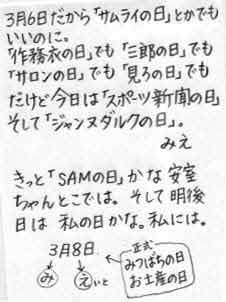 3月6日だから「サムライの日」とかでも
いいのに。
「作務衣の日」でも「三郎の日」でも
「サロンの日」でも「見ろの日」でも
だけど今日は「スポーツ新聞の日」
そして「ジャンヌダルクの日」。
みえ
きっと「SAMの日」かな安室
ちゃんとこでは。そして明後
日は 私の日かな。私には。
3月8日
み
えいと
正式
みつばちの日
お土産の日